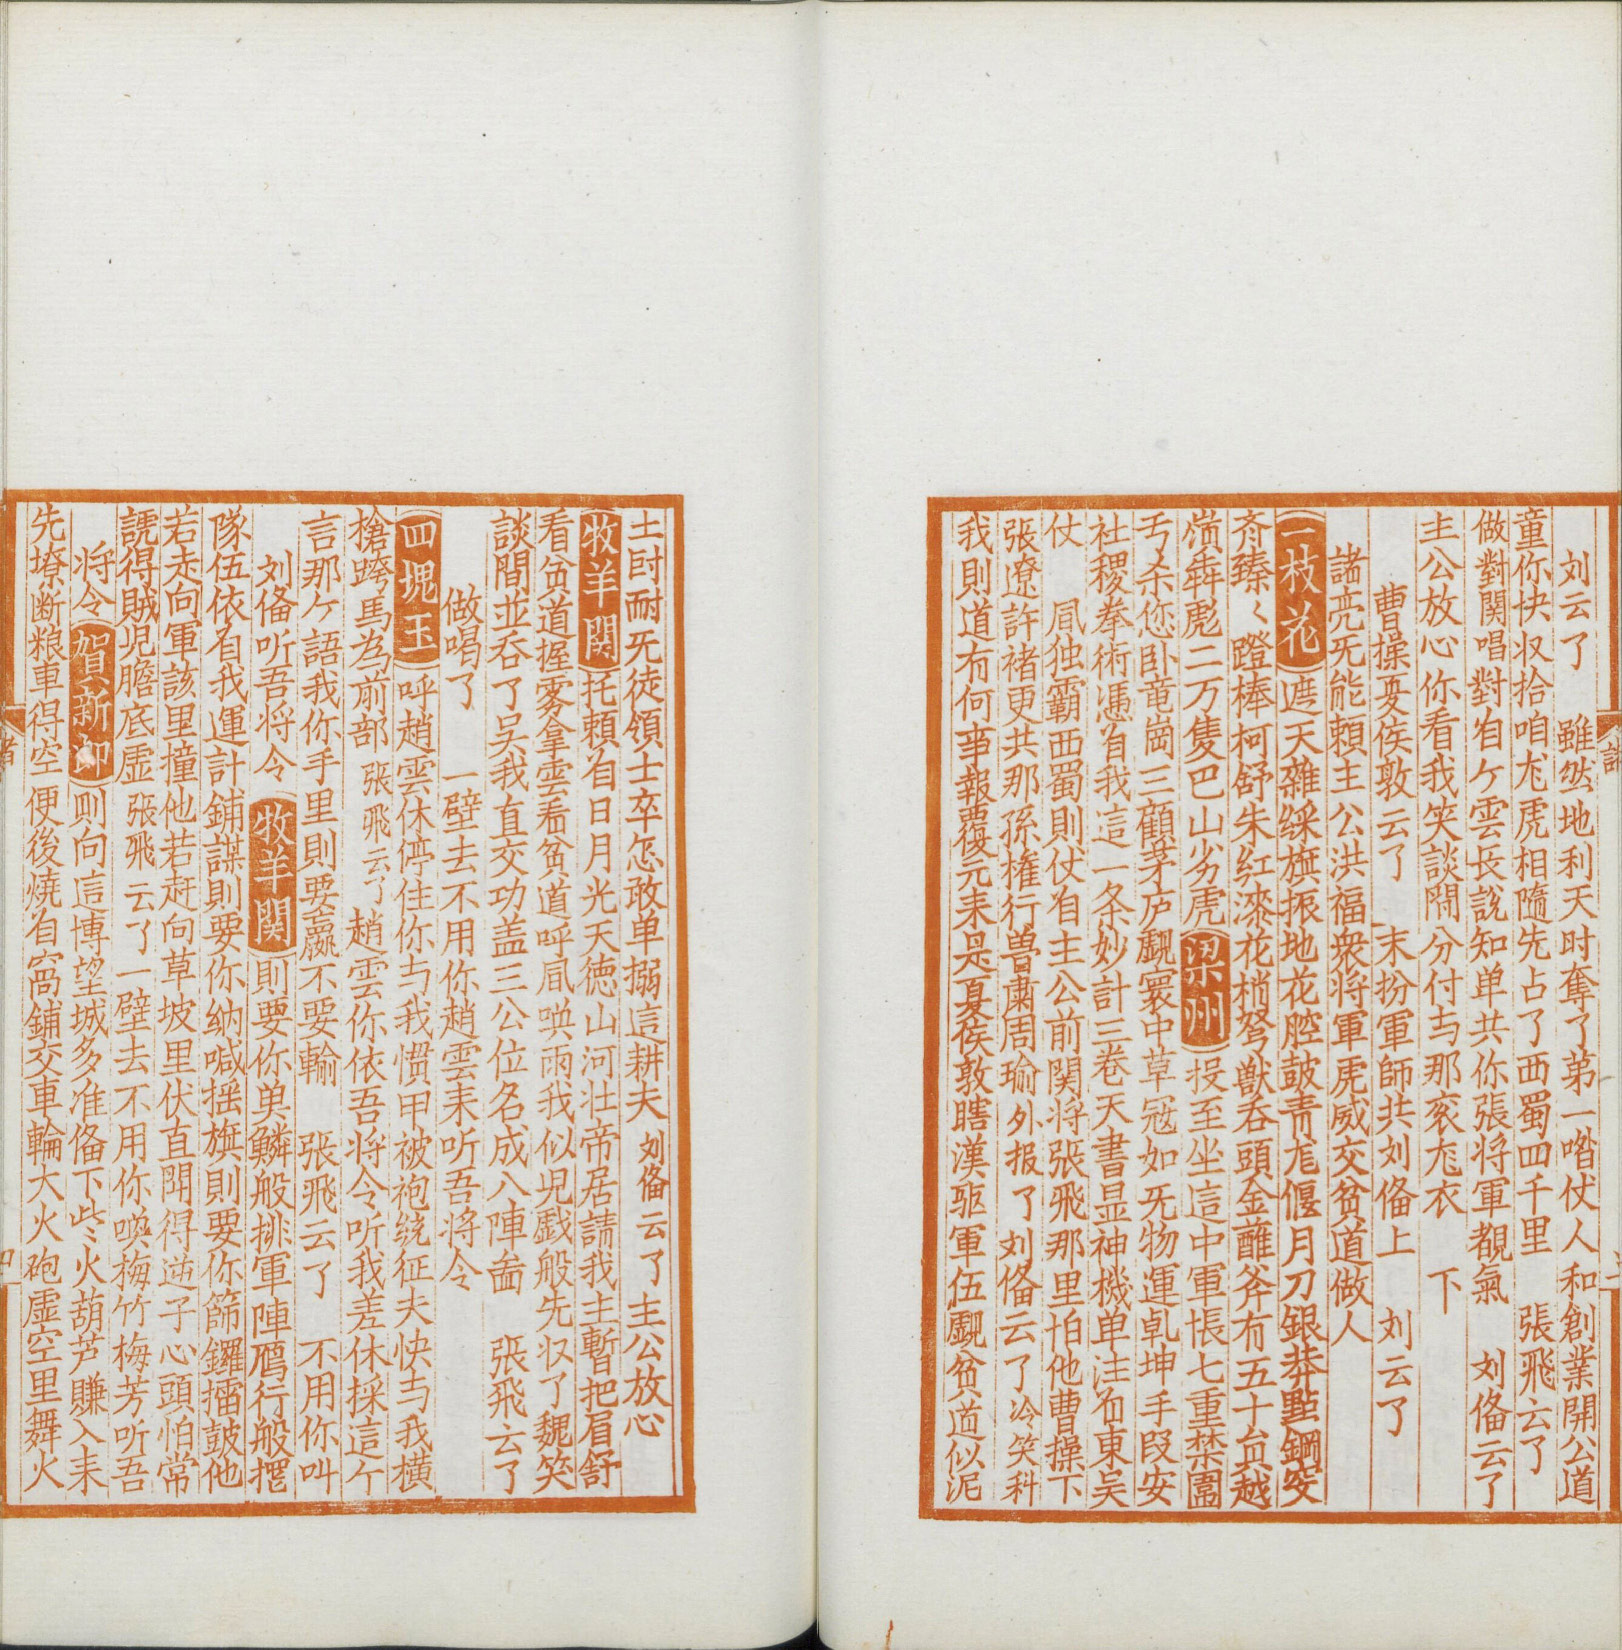 刘云了　雖然地利天时奪了第一喒仗人和創業開公道
童你快収拾咱尨虎相隨先占了西蜀四千里　張飛云了
做對関唱對自ケ雲長説知单共你張将軍覩氣　刘俻云了
主公放心你看我笑談間分付与那衮尨衣　下
曹操夏侯敦云了　末扮軍師共刘俻上　刘云了
諸亮旡能賴主公洪福衆将軍虎威交贫道做人
一枝花　遮天雜綵旗振地花腔鼓青尨偃月刀銀蟒點鋼
斉臻〻蹬棒柯舒朱红漆花梢弩獸呑頭金蘸斧有五十貟越
嶺犇彪二万隻巴山劣虎　梁州　投至坐這中軍帳七重禁圍
丂杀您卧竜崗三顧茅庐覷寰中草冦如旡物運乹坤手段安
社稷拳術憑自我這一条妙計三卷天書显神機单注着東吴
仗　凬独霸西蜀則仗自主公前関将張飛那里怕他曹操下
張遼許褚更共那孫権行曽肃周瑜　外报了　刘俻云了　冷笑科
我則道有何亊報覆元来是夏侯敦瞎漢駈軍伍覷贫道似泥
土時耐旡徒領士卒怎敢单搦這耕夫　刘俻云了　主公放心
牧羊関　托賴自日月光天徳山河壮帝居請我主暫把眉舒
看贫道握雾拿雲看贫道呼凬唤雨我似児戯般先収了魏笑
談間並呑了吴我直交功盖三公位名成八陣啚　張飛云了
做喝了　一壁去不用你趙雲来听吾将令
四塊玉　呼趙雲休停住你与我慣甲被袍统征夫快与我横
槍跨馬為前部　張飛云了　趙雲你依吾将令听我差休採這ケ
言那ケ語我你手里則要羸不要輸　張飛云了　不用你叫
刘俻听吾将令　牧羊関　則要你㒰鱗般排軍陣鴈行般摆
隊伍依自我運計鋪謀則要你纳喊揺旗則要你篩鑼擂鼓他
若走向軍該里撞他若赶向草坡里伏直閗得逆子心頭怕常
諕得賊児膽底虚　張飛云了　一壁去不用你喚梅竹梅芳听吾
将令　賀新郎　則向這博望城多准俻下些火葫芦賺入来
先墩断粮車得空便後燒自窩鋪交車輪大火砲虚空里舞火